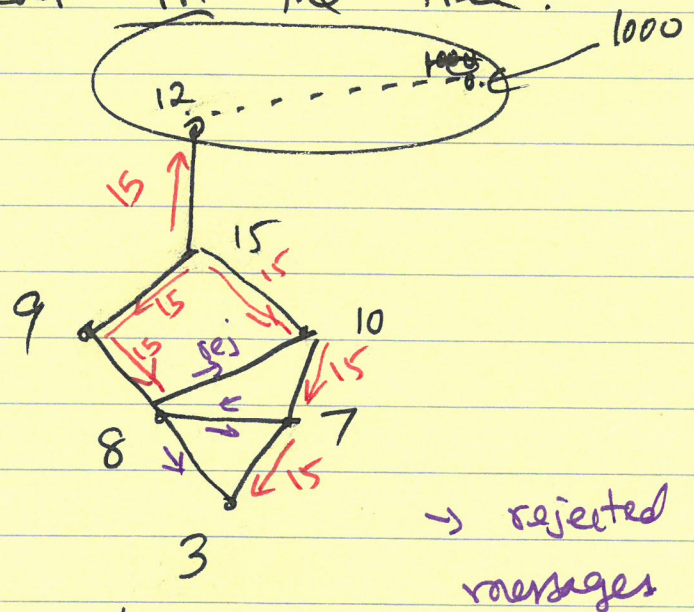 1000
12
15
15
15
9
15
10
15
rej
15
8
7
15
3
→ rejected
messages